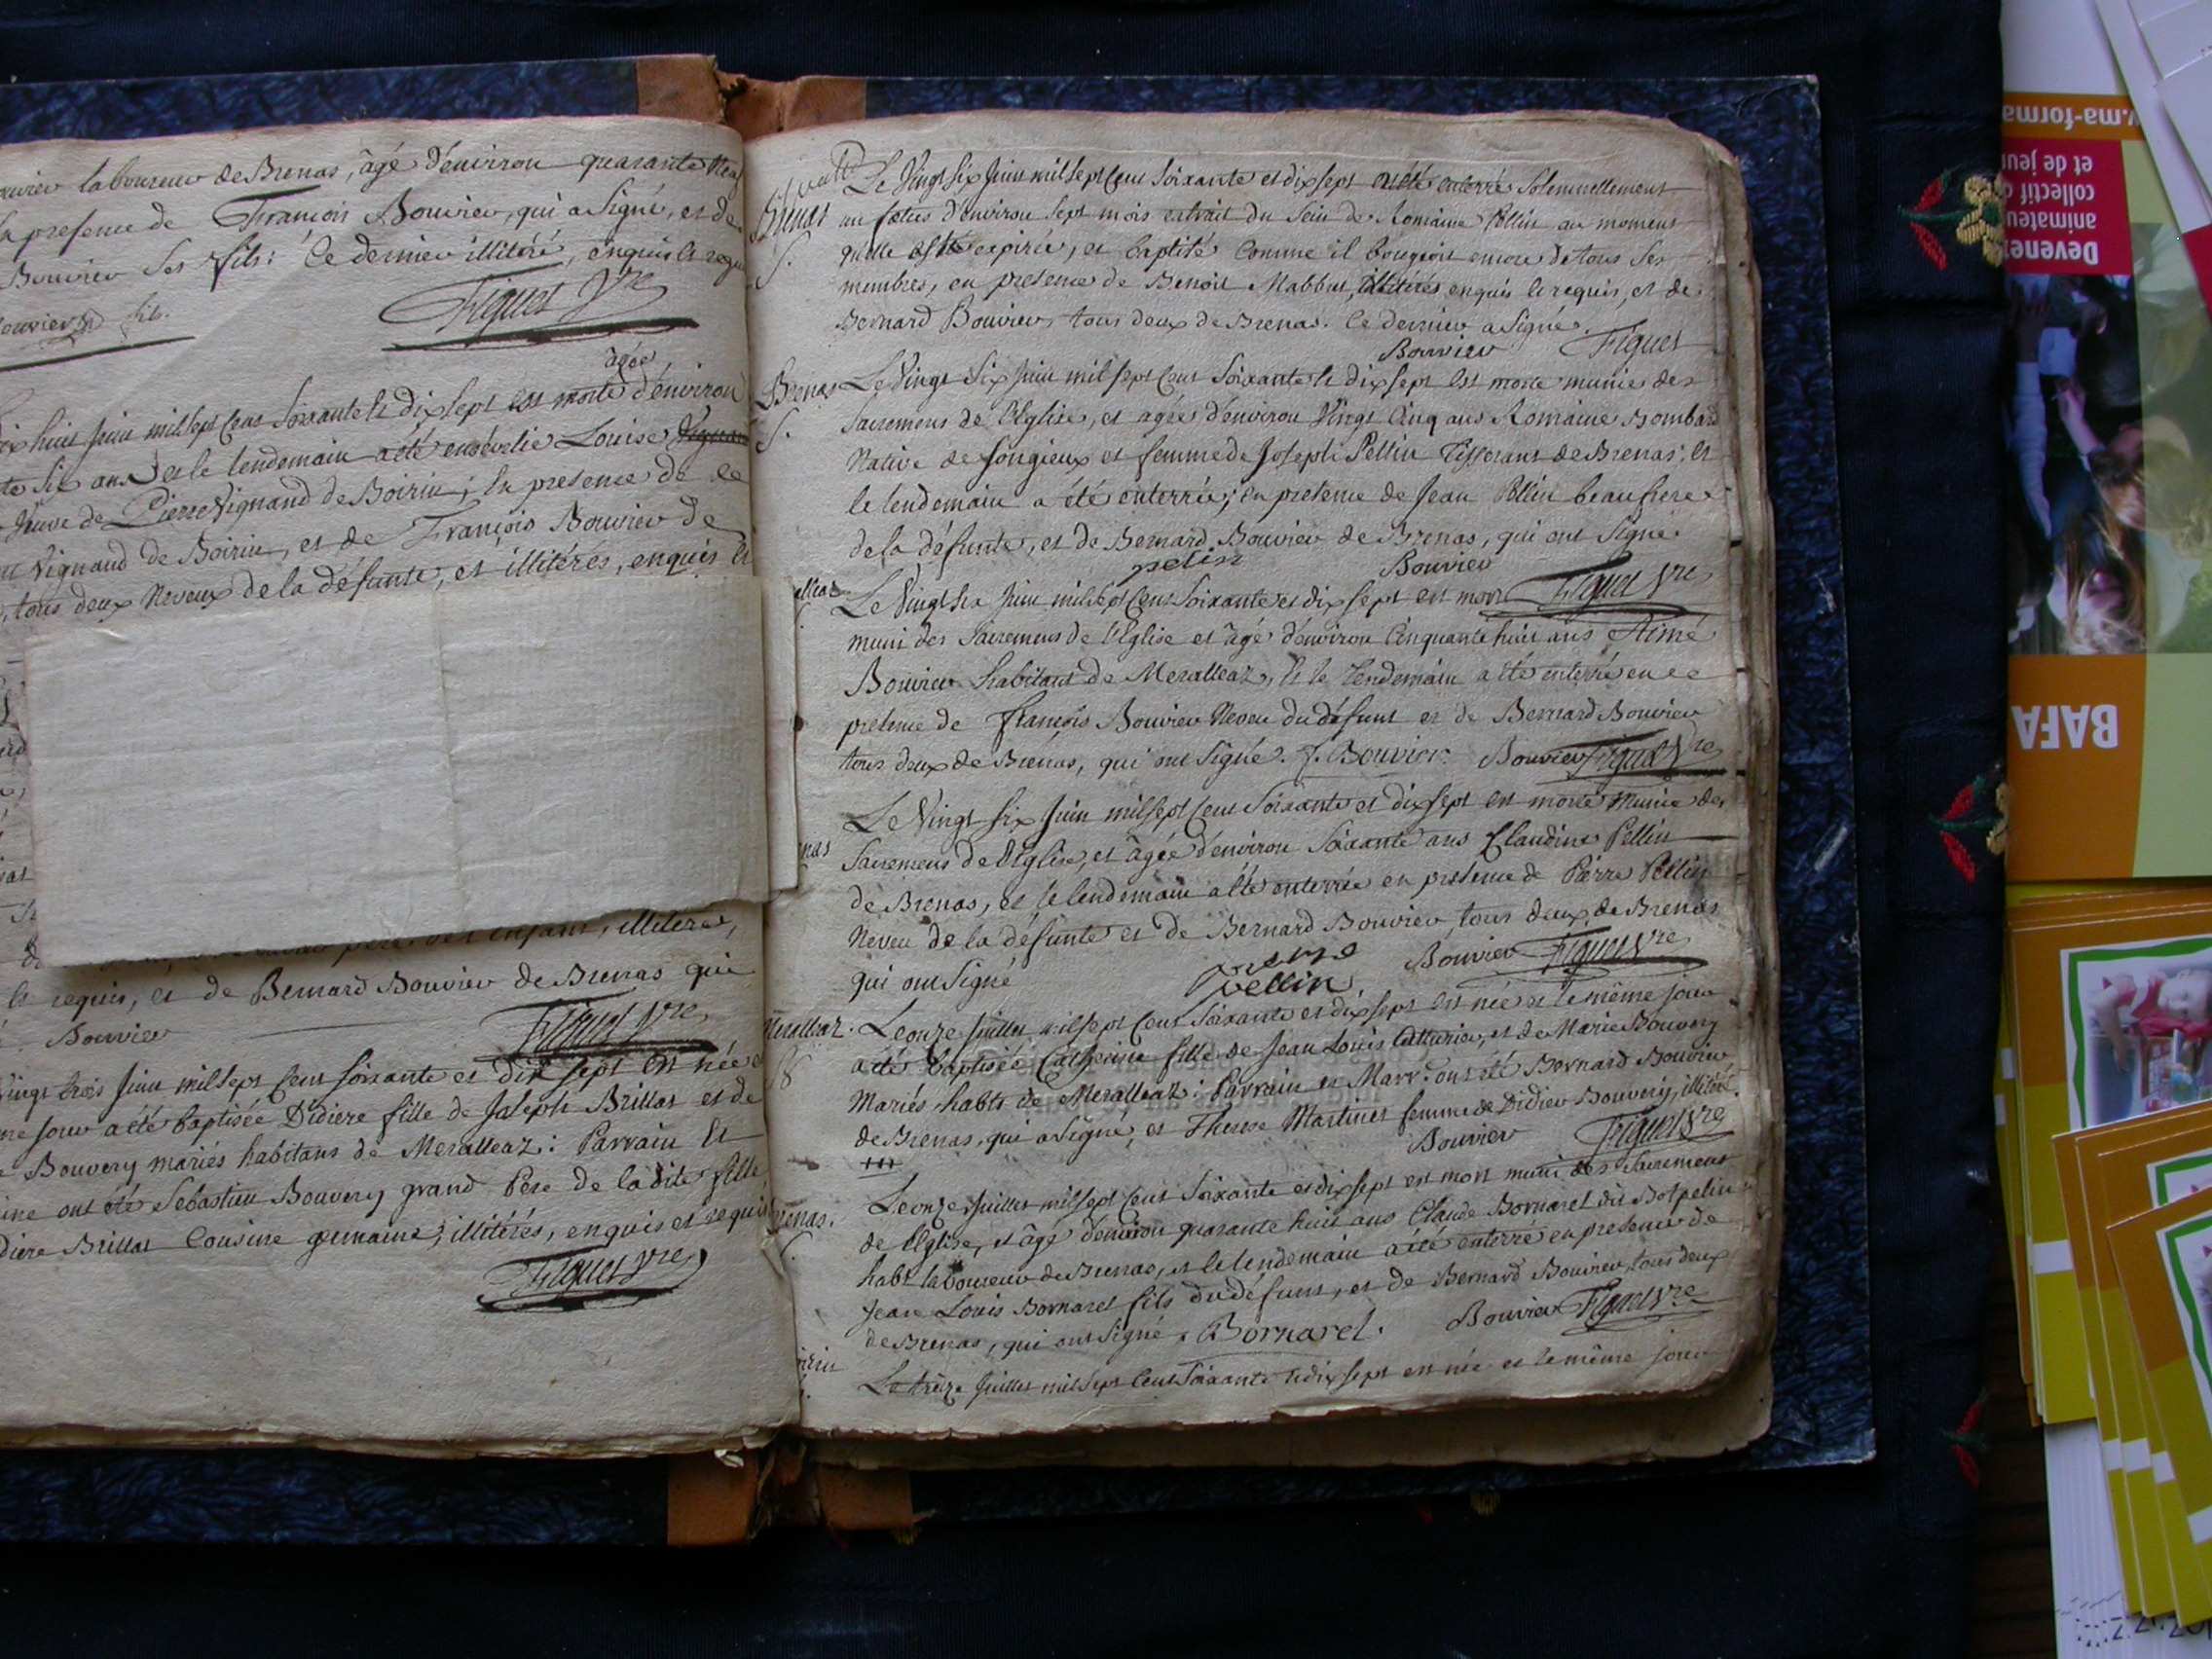 laboureur de Brenas, âgé d'énvirron quarante
presense de François Bouvier, qui a Signé, et de
Bouvier Ses fils: Ce dernier illitéré, enquis et requis
fils.
Figuet Vre
âgée
huit Juin mil Sept Cens Soixante et dix Sept est morte d'énvirron
Six ans et le lendemain a été ensévelie Louise
Veuve de Pierre Vignand de Boirin; en presense de
Vignand de Boirin, et de François Bouvier de
tous deux Neveux de la défunte, et illitérés, enquis et
enfant, illitéré,
et requis, et de Bernard Bouvier de Brenas qui
Bouvier
Figuet Vre
Vingt trois Juin mil Sept Cens Soixante et dix Sept est née
jour a été baptisée Didiere fille de Joseph Brillat et de
Bouvery mariés habitans de Meralleaz: Parrain et
ont été Sébastien Bouvery grand Pere de la dite fille
Brillat Cousine germaine; illitérés, enquis et requis
Figuet Vre
Brenas
S.
Le Vingt Six Juin mil Sept Cens Soixante et dix Sept a été enterré Solemnellement
un foetus d'environ Sept mois extrait du Sein de Romaine Pellin au moment
qu'elle est expirée, et baptisé comme il bougeoit encore de tous Ses
membres, en presense de Benoit Mabbut, illitérés enquis et requis, et de
Bernard Bouvier, tous deux de Brenas. Ce dernier a Signé.
Bouvier Figuet
Brenas
S.
Le Vingt Six Juin mil Sept Cens Soixante et dix Sept est morte munie des
Sacremens de l'Eglise, et agée d'énvirron Vingt Cinq ans Romaine Bombard
Native de Songieux et femme de Joseph Pellin Tisserant de Brenas; et
le lendemain a été enterrée; en presense de Jean Pellin beaufrere
de la défunte, et de Bernard Bouvier de Brenas, qui ont Signé
pelin Bouvier
Figuet Vre
Le Vingt Six Juin mil Sept Cens Soixante et dix Sept est mort
muni des Sacremens de l'Eglise et âgé d'énvirron Cinquante huit ans Aimé
Bouvier habitant de Meralleaz, et le lendemain a été enterré en
presense de François Bouvier Neveu du défunt et de Bernard Bouvier
tous deux de Brenas, qui ont Signé. f. Bouvier. Bouvier Figuet Vre
nas
Le Vingt Six Juin mil Sept Cens Soixante et dix Sept est morte Munie des
Sacremens de l'Eglise, et âgée d'énvirron Soixante ans Claudine Pellin
de Brenas, et le lendemain a été enterrée en presense de Pierre Pellin
Neveu de la défunte et de Bernard Bouvier, tous deux de Brenas
qui ont Signé pierre pellin, Bouvier Figuet Vre
Meralleaz.
Le onze Juillet mil Sept Cens Soixante et dix Sept est née et le même jour
a été baptisée Catherine fille de Jean Louis et de Marie Bouvery
Mariés habts de Meralleaz: Parrain et Marr. ont été Bernard Bouvier
de Brenas, qui a Signé, et Therese Martinet femme de Didier Bouvery, illitéré.
Bouvier Figuet Vre
Brenas.
Le onze Juillet mil Sept Cens Soixante et dix Sept est mort muni des Sacremens
de l'Eglise, et âgé d'énvirron quarante huit ans Claude Bornarel dit
habt laboureur de Brenas, et le lendemain a été enterré en presense de
Jean Louis Bornarel fils du défunt, et de Bernard Bouvier, tous deux
de Brenas, qui ont Signé. Bornarel. Bouvier Figuet Vre
Le treize Juillet mil Sept Cens Soixante et dix Sept est née et le même jour
ma-forma
et de jeun
collectif
animateu
Devenez
BAFA